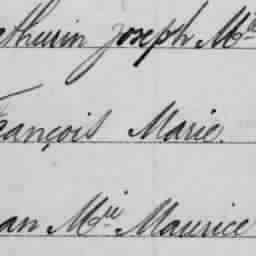 athurin Joseph Mie
François Marie.
ean Mie Maurice